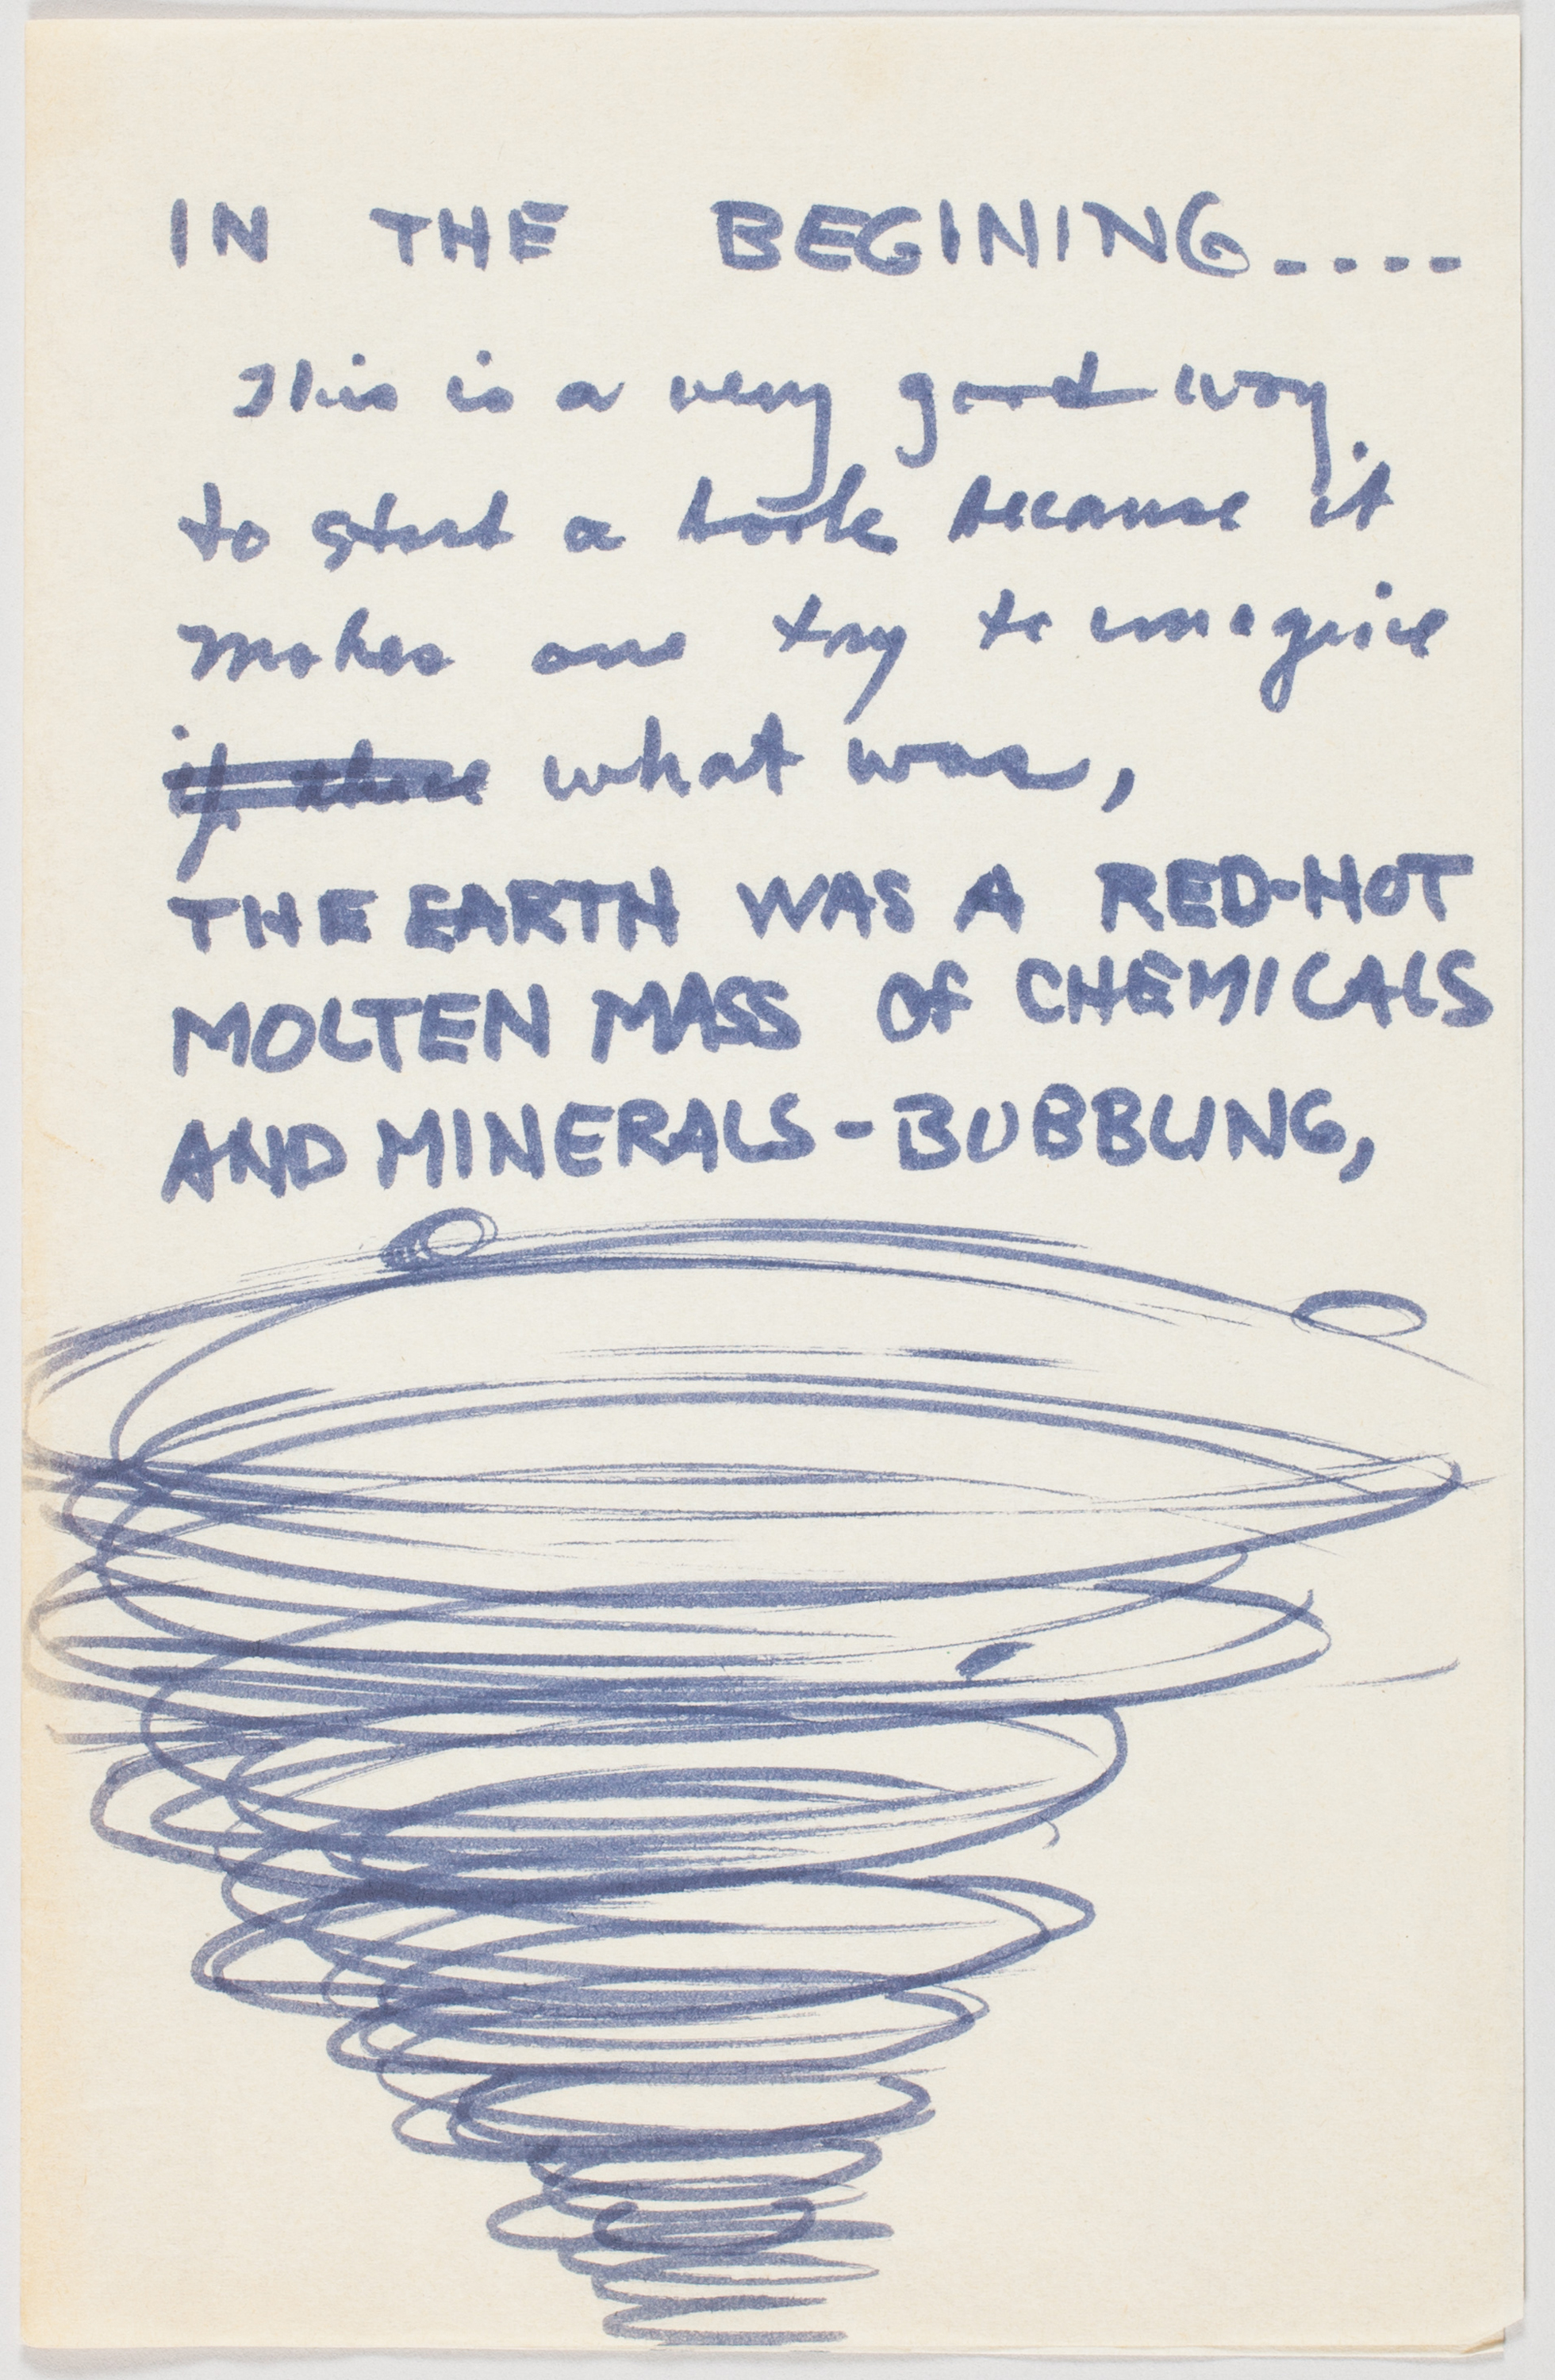 IN THE BEGINING.....
This is a very good way
to start a book because it
makes one try to imagine
if there what was,
THE EARTH WAS A RED-HOT
MOLTEN MASS OF CHEMICALS
AND MINERALS - BUBBLING,